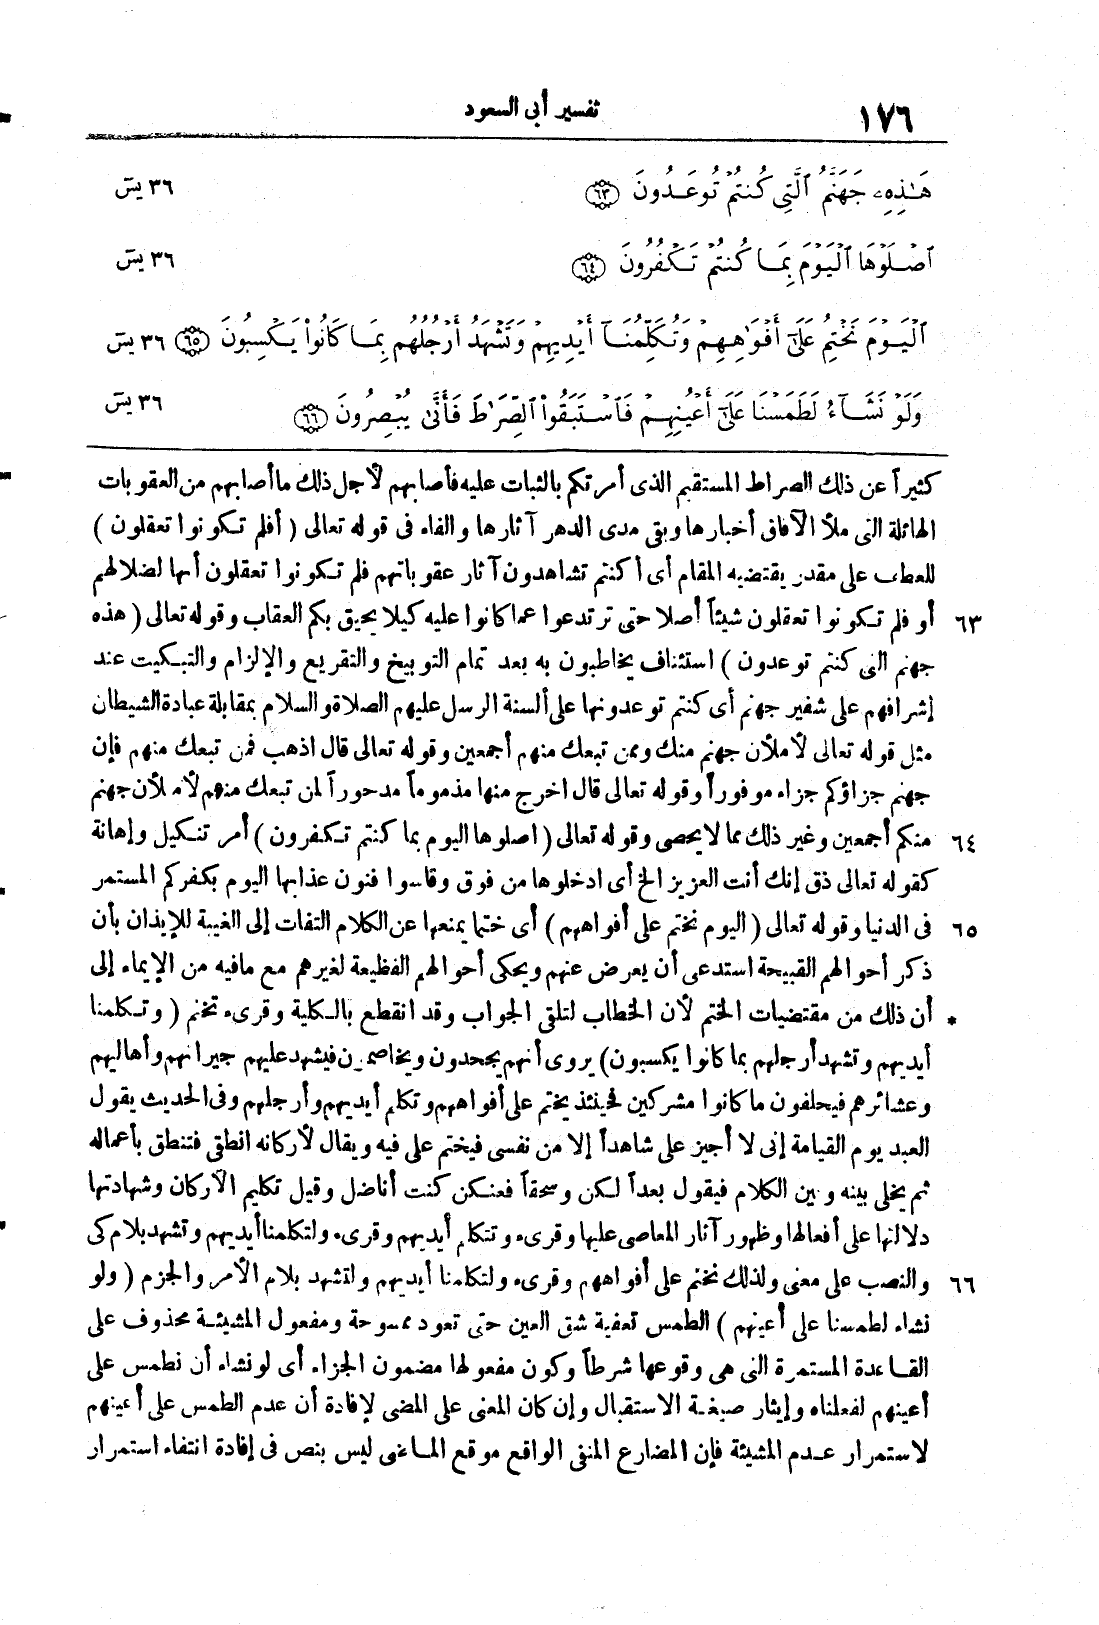 ١٧٦
تفسير أبى السعود
هَـٰذِهِۦ جَهَنَّمُ ٱلَّتِى كُنتُمْ تُوعَدُونَ ﴿٦٣﴾ ٣٦ يسٓ
ٱصْلَوْهَا ٱلْيَوْمَ بِمَا كُنتُمْ تَكْفُرُونَ ﴿٦٤﴾ ٣٦ يسٓ
ٱلْيَوْمَ نَخْتِمُ عَلَىٰٓ أَفْوَٰهِهِمْ وَتُكَلِّمُنَآ أَيْدِيهِمْ وَتَشْهَدُ أَرْجُلُهُم بِمَا كَانُوا۟ يَكْسِبُونَ ﴿٦٥﴾ ٣٦ يسٓ
وَلَوْ نَشَآءُ لَطَمَسْنَا عَلَىٰٓ أَعْيُنِهِمْ فَٱسْتَبَقُوا۟ ٱلصِّرَٰطَ فَأَنَّىٰ يُبْصِرُونَ ﴿٦٦﴾ ٣٦ يسٓ
كثيراً عن ذلك الصراط المستقيم الذى أمرتكم بالثبات عليه فأصابهم لأجل ذلك ما أصابهم من العقوبات
الهائلة التى ملأ الآفاق أخبارها وبقى مدى الدهر آثارها والفاء فى قوله تعالى ( أفلم تكونوا تعقلون )
للعطف على مقدر يقتضيه المقام أى أكنتم تشاهدون آثار عقوباتهم فلم تكونوا تعقلون أنها لضلالهم
٦٣ أو فلم تكونوا تعقلون شيئاً أصلا حتى ترتدعوا عما كانوا عليه كيلا يحيق بكم العقاب وقوله تعالى ( هذه
جهنم التى كنتم توعدون ) استئناف يخاطبون به بعد تمام التوبيخ والتقريع والإلزام والتبكيت عند
إشرافهم على شفير جهنم أى كنتم توعدونها على ألسنة الرسل عليهم الصلاة والسلام بمقابلة عبادة الشيطان
مثل قوله تعالى لأملأن جهنم منك وممن تبعك منهم أجمعين وقوله تعالى قال اذهب فمن تبعك منهم فإن
جهنم جزاؤكم جزاء موفوراً وقوله تعالى قال اخرج منها مذموماً مدحوراً لمن تبعك منهم لأملأن جهنم
٦٤ منكم أجمعين وغير ذلك مما لا يحصى وقوله تعالى ( اصلوها اليوم بما كنتم تكفرون ) أمر تنكيل وإهانة
كقوله تعالى ذق إنك أنت العزيز الخ أى ادخلوها من فوق وقاسوا فنون عذابها اليوم بكفركم المستمر
٦٥ فى الدنيا وقوله تعالى ( اليوم نختم على أفواههم ) أى ختما يمنعها عن الكلام التفات إلى الغيبة للإيذان بأن
ذكر أحوالهم القبيحة استدعى أن يعرض عنهم ويحكى أحوالهم الفظيعة لغيرهم مع مافيه من الإيماء إلى
* أن ذلك من مقتضيات الختم لأن الخطاب لتلقى الجواب وقد انقطع بالكلية وقرىء تختم ( وتكلمنا
أيديهم وتشهد أرجلهم بما كانوا يكسبون) يروى أنهم يجحدون ويخاصمون فيشهد عليهم جيرانهم وأهاليهم
وعشائرهم فيحلفون ما كانوا مشركين فحينئذ يختم على أفواههم وتكلم أيديهم وأرجلهم وفى الحديث يقول
العبد يوم القيامة إنى لا أجيز على شاهداً إلا من نفسى فيختم على فيه ويقال لأركانه انطقى فتنطق بأعماله
ثم يخلى بينه وبين الكلام فيقول بعداً لكن وسحقاً فعنكن كنت أناضل وقيل تكليم الأركان وشهادتها
دلالتها على أفعالها وظهور آثار المعاصى عليها وقرىء وتتكلم أيديهم وقرىء ولتكلمنا أيديهم وتشهد بلام كى
٦٦ والنصب على معنى ولذلك نختم على أفواههم وقرىء ولتكلمنا أيديهم ولتشهد بلام الأمر والجزم ( ولو
نشاء لطمسنا على أعينهم ) الطمس تعفية شق العين حتى تعود ممسوحة ومفعول المشيئة محذوف على
القاعدة المستمرة التى هى وقوعها شرطاً وكون مفعولها مضمون الجزاء أى لو نشاء أن نطمس على
أعينهم لفعلناه وإيثار صيغة الاستقبال وإن كان المعنى على المضى لإفادة أن عدم الطمس على أعينهم
لاستمرار عدم المشيئة فإن المضارع المنفى الواقع موقع الماضى ليس بنص فى إفادة انتفاء استمرار